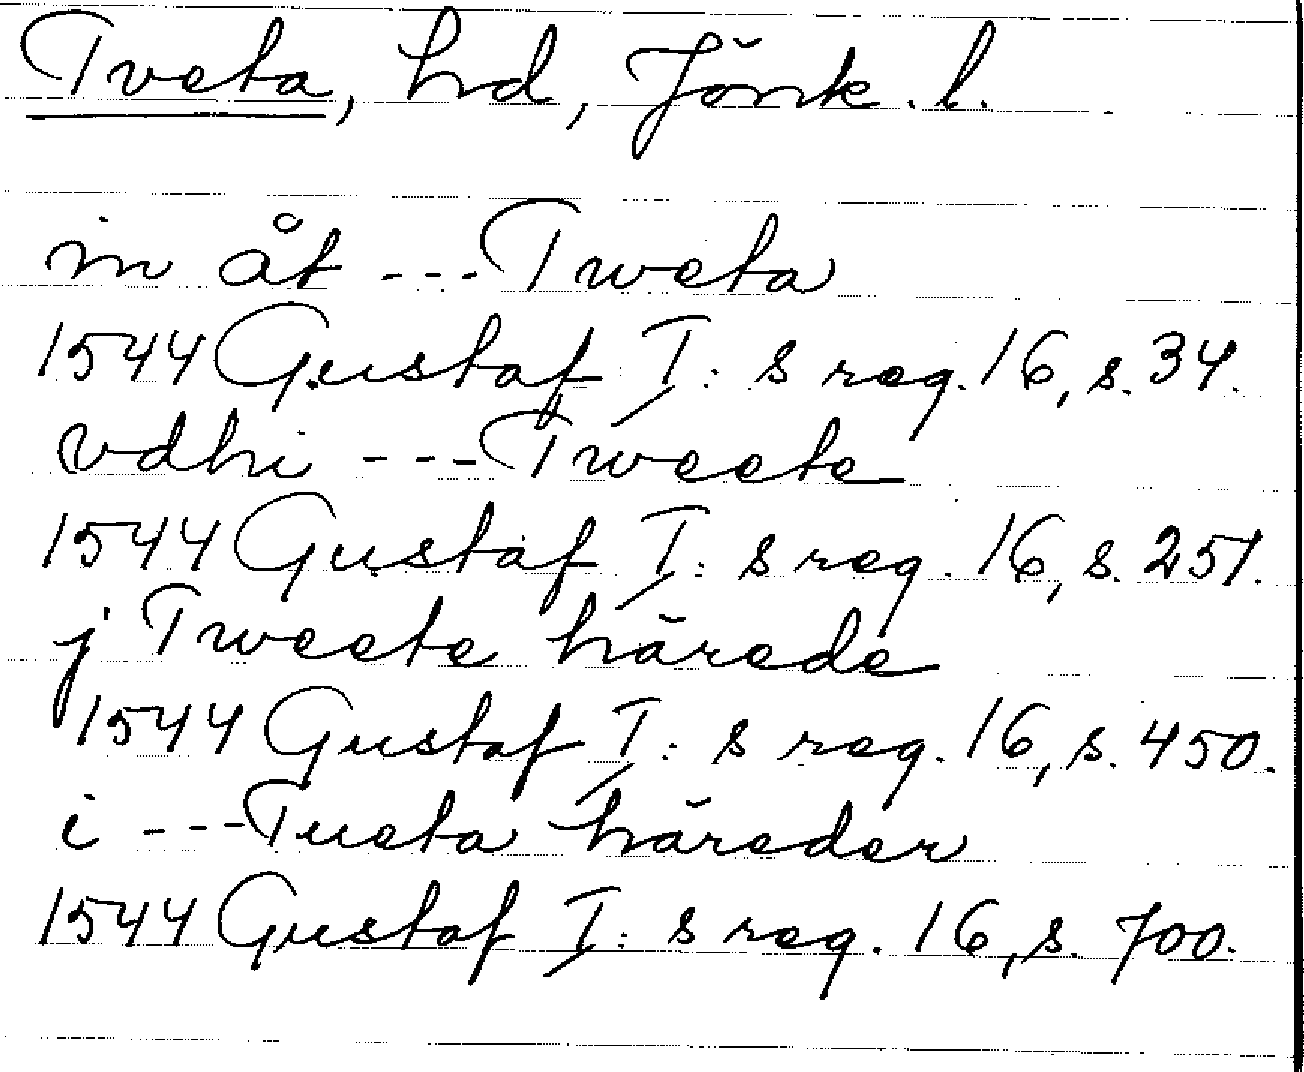 Tveta, hd, Jönk. l.
in åt --- Tweta
1544 Gustaf I: s reg. 16, s. 34.
vdhi --- Tweete
1544 Gustaf I: s reg. 16, s. 251.
j Tweete härede
1544 Gustaf I: s reg. 16, s. 450.
i --- Tueta häreder
1544 Gustaf I: s reg. 16, s. 700.